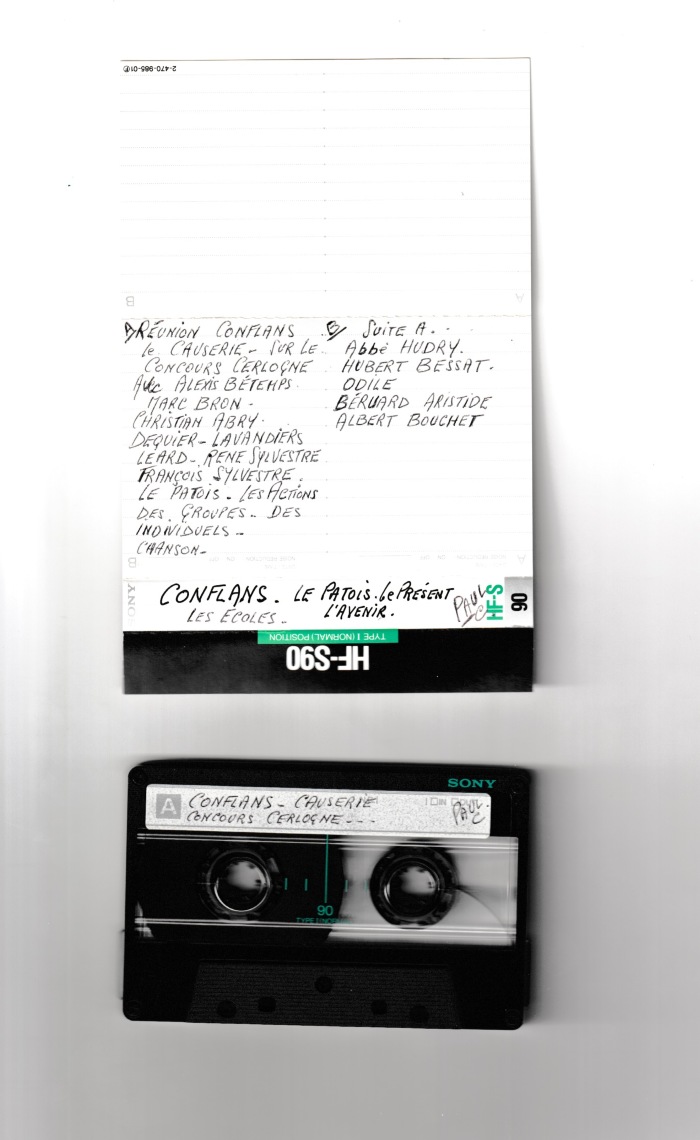 2-470-985-01
B
A
A) RÉUNION CONFLANS
le CAUSERIE - SUR LE
CONCOURS CERLOGNE
Avec ALEXIS BÉTEMPS.
MARC BRON -
CHRISTIAN ABRY.
DEQUIER - LAVANDIERS
LEARD - RENE SYLVESTRE
FRANÇOIS SYLVESTRE.
LE PATOIS - LES ACTIONS
DES GROUPES - DES
INDIVIDUELS -
CHANSON -
B) SUITE A..
Abbé HUDRY.
HUBERT BESSAT.
ODILE
BÉRUARD ARISTIDE
ALBERT BOUCHET
B
SONY
CONFLANS. LE PATOIS. Le PRÉSENT
LES ECOLES - L'AVENIR.
PAUL C
HF-S
90
TYPE I (NORMAL) POSITION
HF-S90
SONY
A CONFLANS - CAUSERIE
CONCOURS CERLOGNE - - -
PAUL C
90
TYPE I (NORMAL)